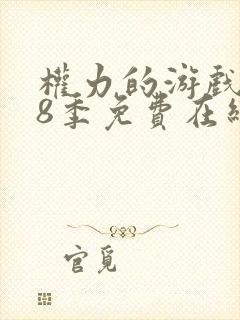 權力的游戲
8季免費在線
官覓